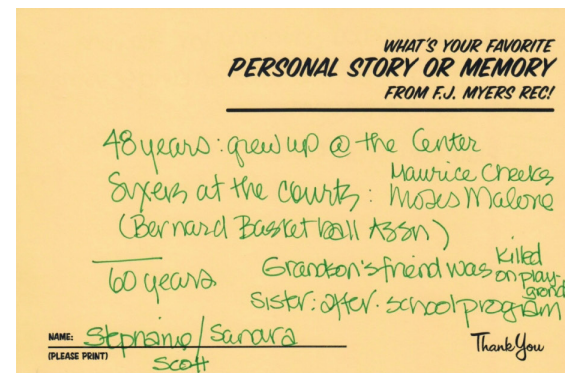 WHAT'S YOUR FAVORITE
PERSONAL STORY OR MEMORY
FROM F.J. MYERS REC!
48 years: grew up @ the Center
Maurice Cheeks
Sixers at the courts: Moses Malone
(Bernard Basketball Assn)
60 years Grandson's friend was killed on playgrond
Sister: after-school program
NAME: Stephanie/Sandra
(PLEASE PRINT) Scott
Thank You